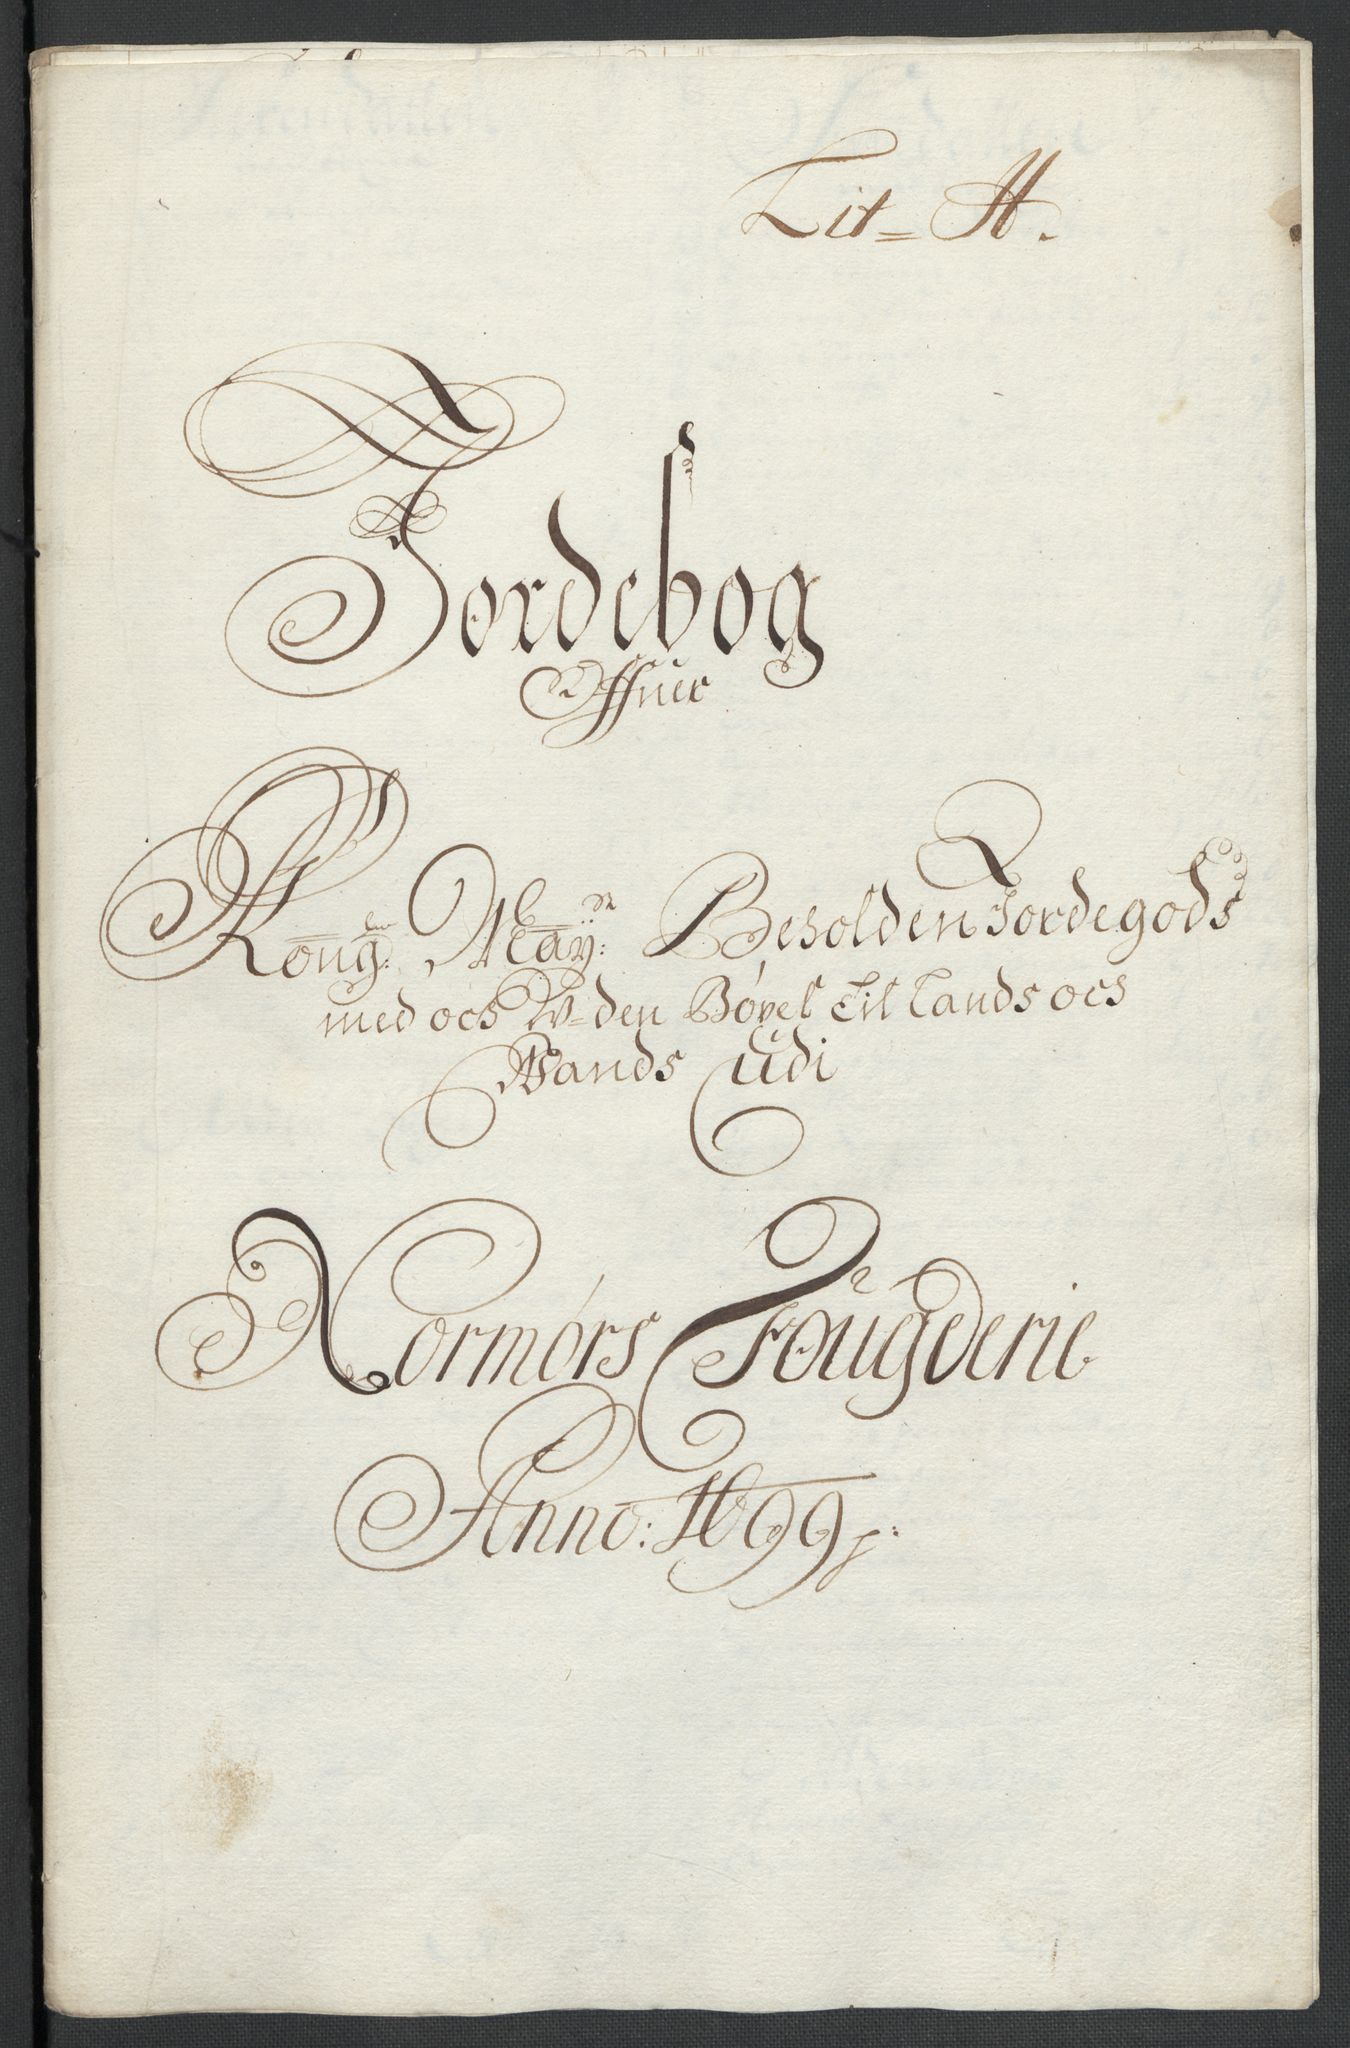 Lit= A.
Jordebog
Offuer
Kong: May: Beholden Jordegods
med och U=den Bøxel Til Lands och
Wands Udi
Normørs Fougderie
Anno: 1699